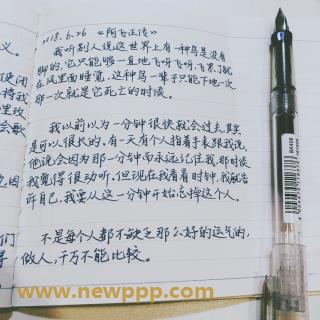 2018.6.26 《阿飞正传》
我听别人说这世界上有一种鸟是没有
脚的,它只能够一直地飞呀飞呀,飞累了就
在风里面睡觉,这种鸟一辈子只能下地一次
那一次就是它死亡的时候。
我以前以为一分钟很快就会过去,其实
是可以很长的,有一天有个人指着手表跟我说,
他说会因为那一分钟而永远记住我,那时候
我觉得很动听,但现在我看着时钟,我就告
诉自己,我要从这一分钟开始忘掉这个人。
不是每个人都不缺乏那么好的运气的,
做人,千万不能比较。
义。
使闭
持我
里改
会歌
因
们
www.newppp.com